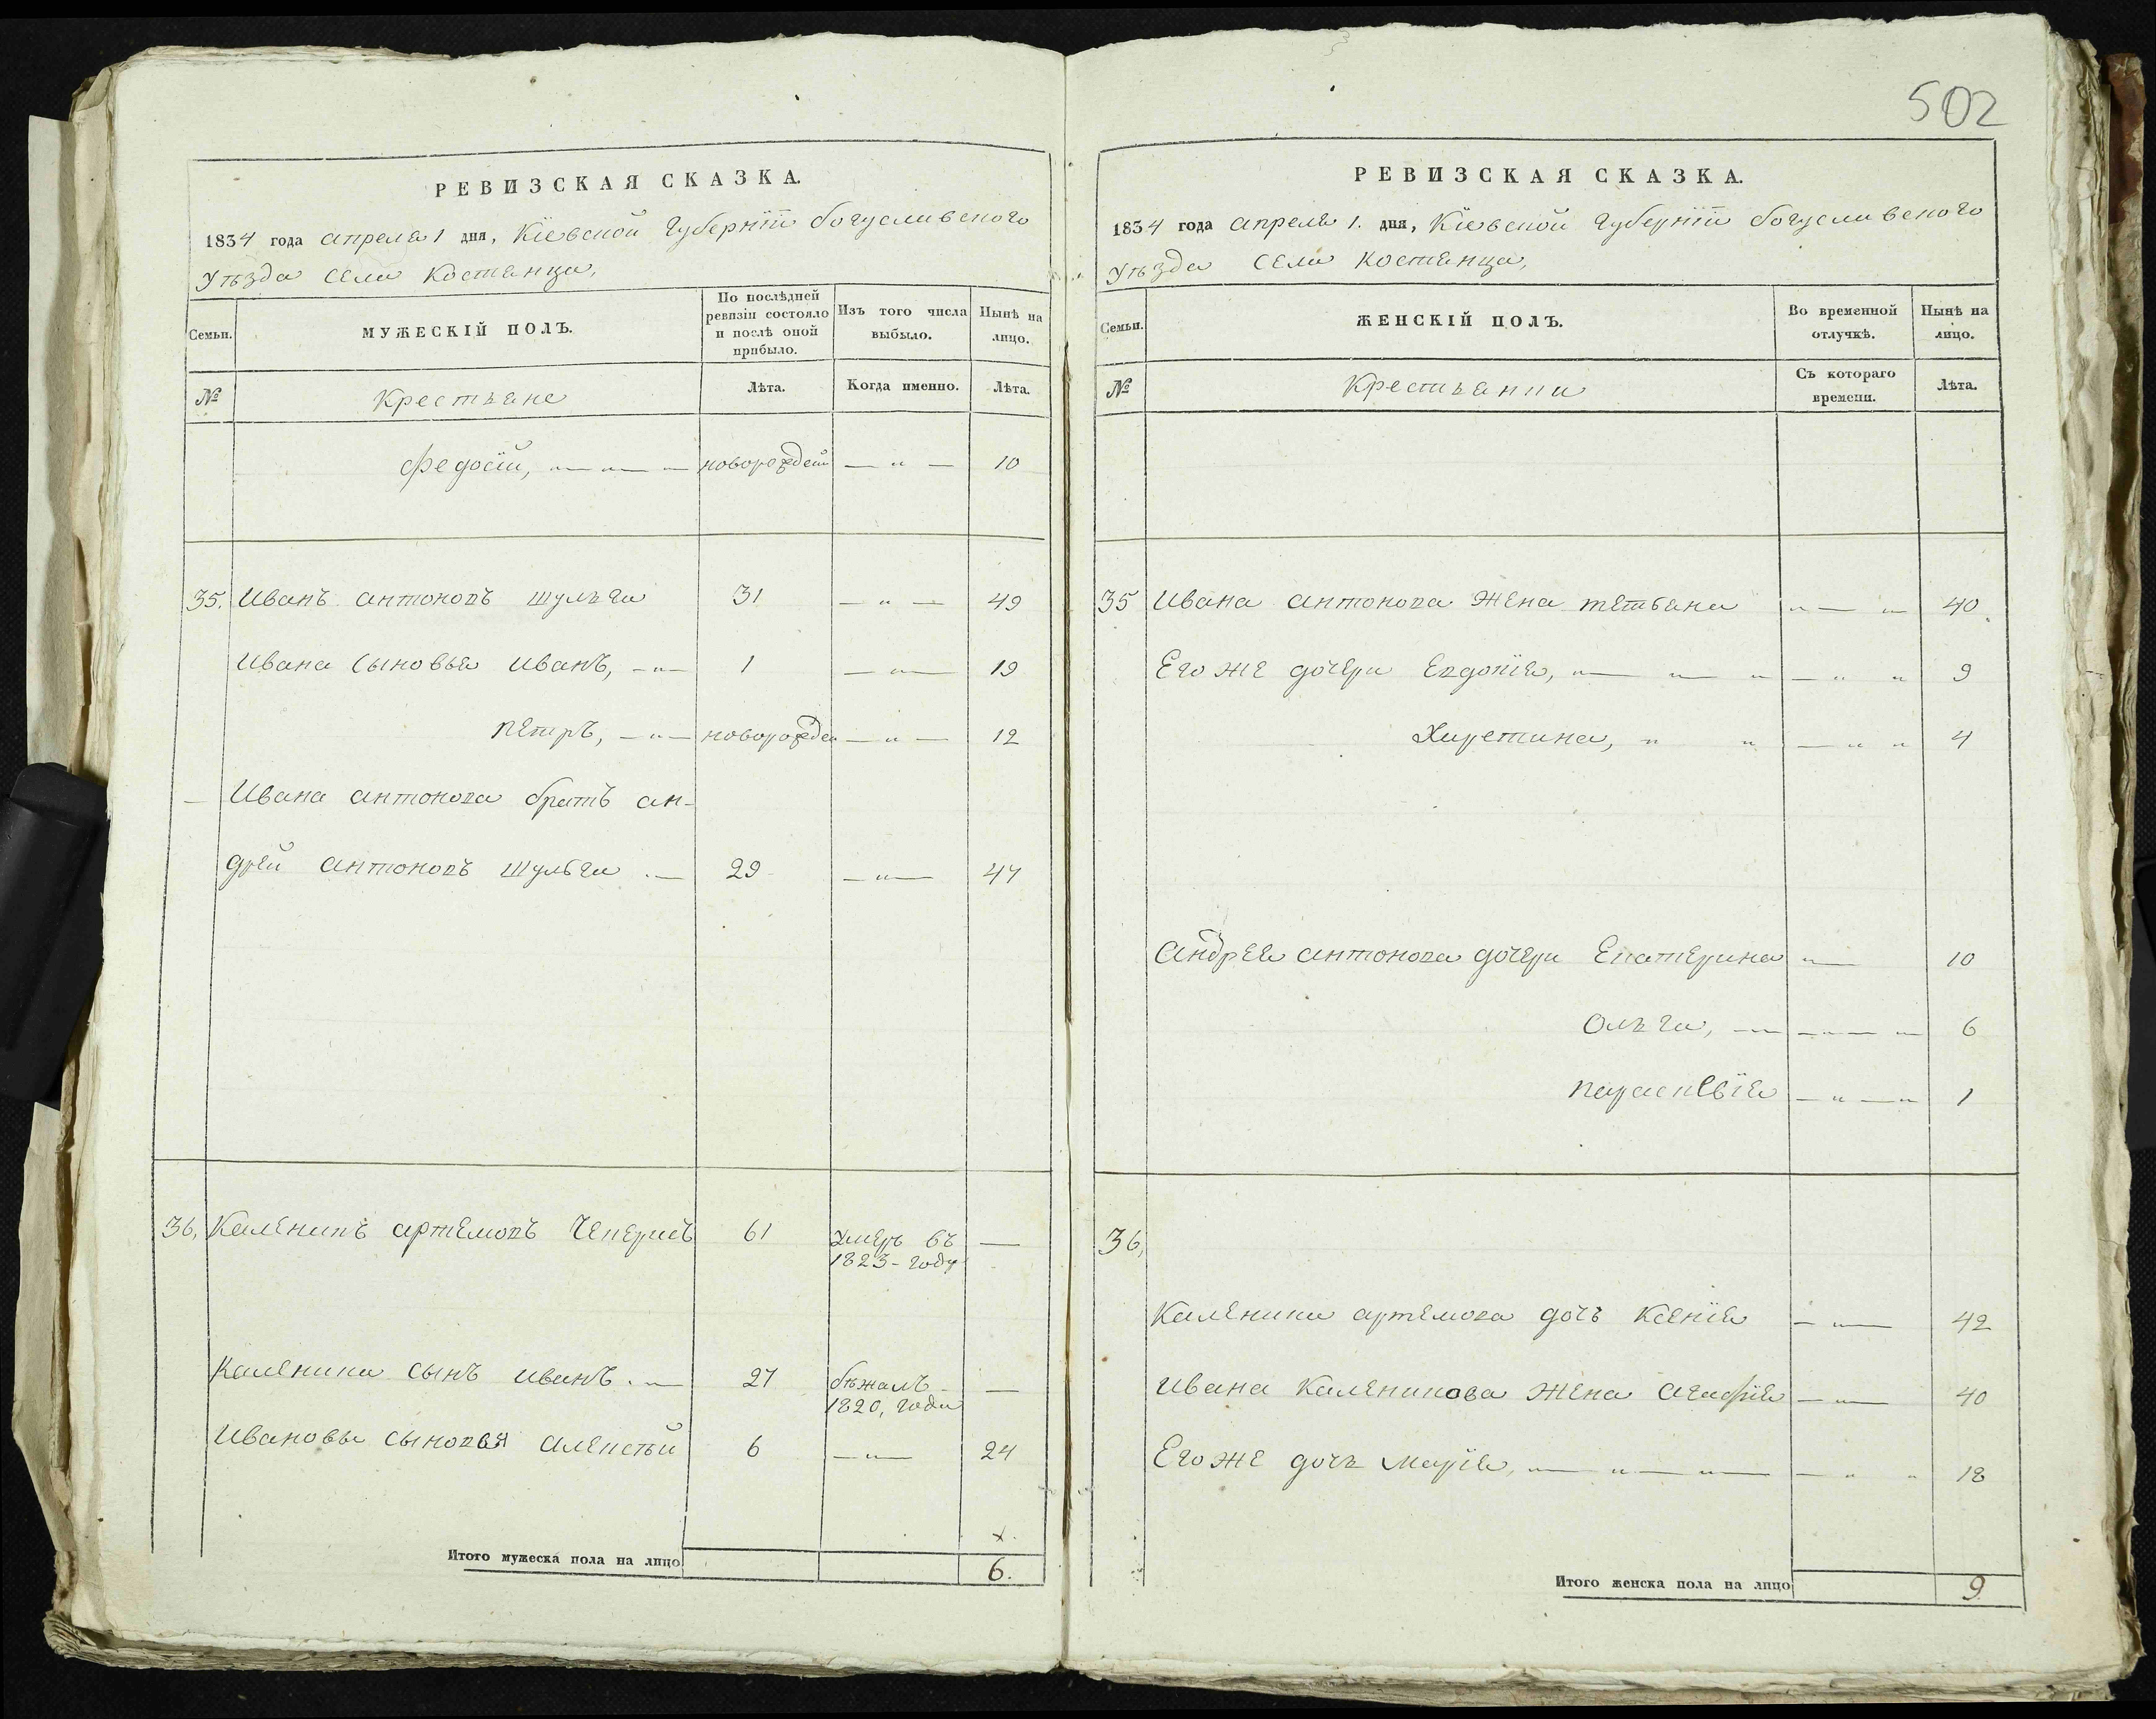 502
РЕВИЗСКАЯ СКАЗКА.
1834 года апреля 1 дня, Кіевской Губерніи богуславского
Уѣзда села Костянца,
Семьи.
МУЖЕСКІЙ ПОЛЪ.
По послѣдней ревизіи состояло и послѣ оной прибыло.
Изъ того числа выбыло.
Нынѣ на лицо.
№
Крестьяне
Лѣта.
Когда именно.
Лѣта.
Федосій, новорожден — „ — 10
35. Иванъ антоновъ шульга 31 — „ — 49
Ивана сыновья иванъ, — „ — 1 — „ — 19
петръ, — „ — новорожден — „ — 12
Ивана антонова братъ ан-
дрей антоновъ шульга . — 29 — „ — 47
36. Каленикъ артемовъ Чепернсъ 61 Умеръ въ —
1823 - году
Каленика сынъ иванъ . „ 27 бѣжалъ —
1820, года
Ивановы сыновья алексѣй 6 — „ — 24
х.
Итого мужеска пола на лицо 6.
РЕВИЗСКАЯ СКАЗКА.
1834 года апреля 1. дня, Кіевской Губерніи богуславского
Уѣзда села костянца,
Семьи.
ЖЕНСКІЙ ПОЛЪ.
Во временной отлучкѣ.
Нынѣ на лицо.
№
Крестьянки
Съ котораго времени.
Лѣта.
35 Ивана антонова жена татьяна „ — „ 40
Его же дочери Евдокія, „ — „ — „ — „ „ 9
Хиретина, „ „ — „ „ 4
андрея антонова дочери Екатерина „ — 10
Ольга, — „ — „ — „ 6
параскевія — „ — „ 1
36,
Каленика артемова дочь Ксенія — „ — 42
ивана Каленикова жена агафія — „ — 40
Его же дочь марія, „ — „ — „ — „ „ 18
Итого женска пола на лицо 9